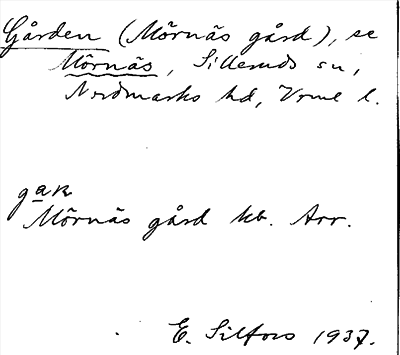 Gården (Mörnäs gård), se
Mörnäs, Silleruds sn,
Nordmarks hd, Vrml l.
gaṛn
Mörnäs gård kb. Arr.
E. Silfors 1937.